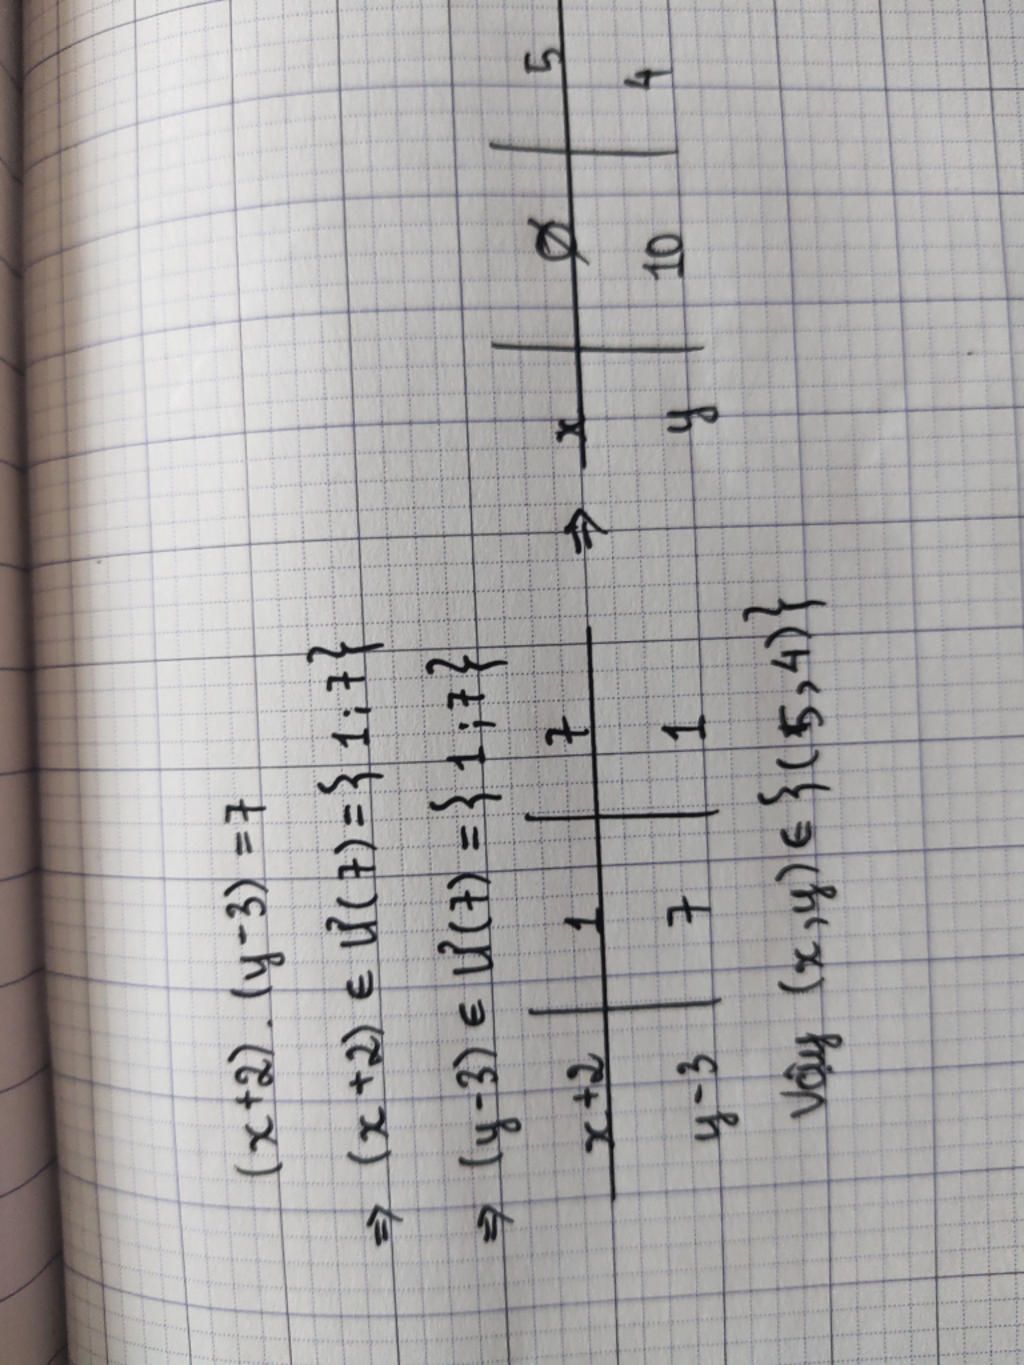 (x+2).(y-3)=7
⇒ (x+2) ∈ Ư(7)={1;7}
⇒ (y-3) ∈ Ư(7)={1;7}
x+2 | 1 | 7 ⇒ x | ∅ | 5
y-3 | 7 | 1 y | 10 | 4
Vậy (x,y) ∈ {(5,4)}